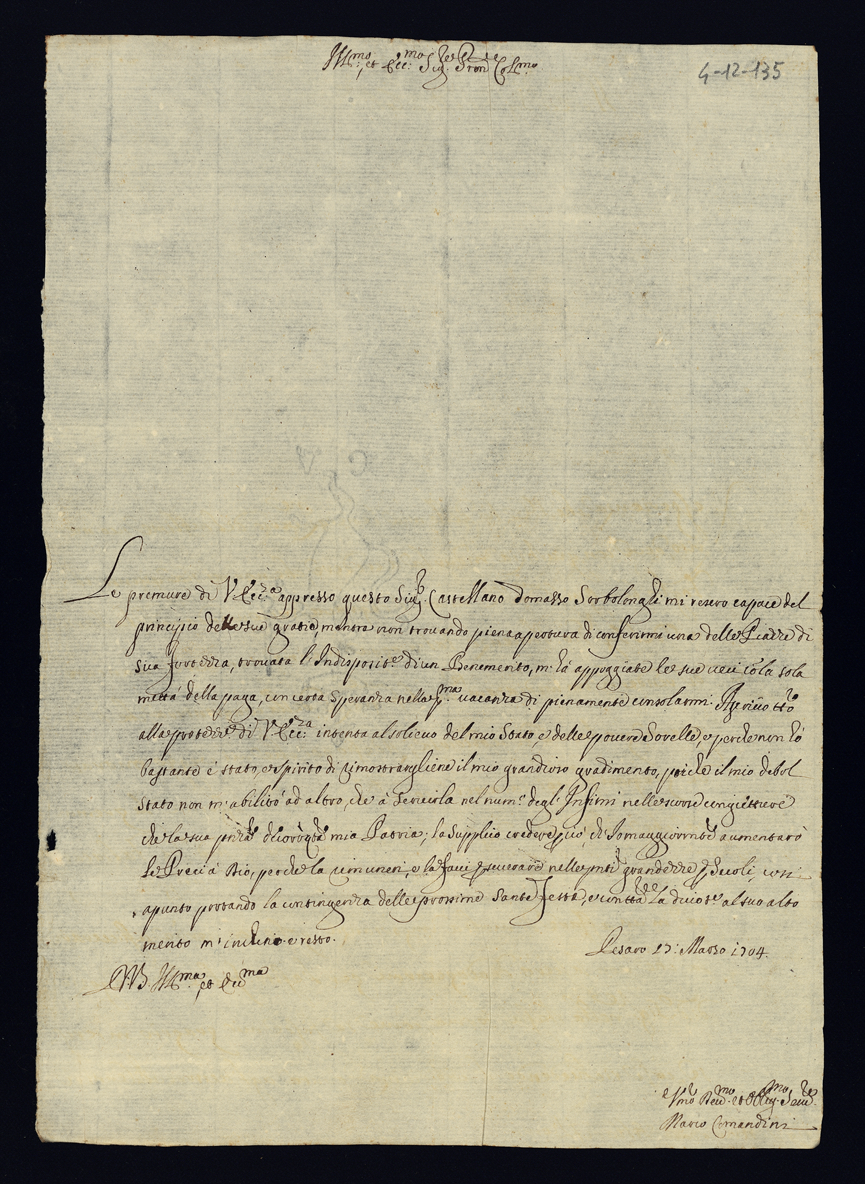 Ill.mo et Ecc.mo Sig.re Pron Col.mo
4-12-135
Le premure di V. Ecc.za appresso questo Sig.r Castellano Tomasso Sorbolonghi mi resero capace del
principio delle sue gratie, mentre non trovando piena apertura di conferirmi una delle Piazze di
sua fortezza, trovata l'Indisposit.e di un Benemerito, m'hà appoggiate le sue veci cola sola
mettà della paga, con certa speranza nella p.ma vacanza di pienamente consolarmi. Ascrivo tt.o
alla protez.e di V. Ecc.za intenta al solievo del mio Stato, e delle povere Sorelle, e perche non hò
bastante è stato, e spirito di dimostrargliene il mio grandissimo gradimento, poiche il mio debol
Stato non m'abilitò ad altro, che à servirla nel num.o degl'Infimi nelle scorse congietture
che la sua mia Patria; la supplico credere, che Io maggiormente aumentarò
le Preci à Dio, perche la rimuneri, e la facci perseverare nelle grandezze p secoli cosi
apunto portando la contingenza delle prossime Sante Feste, e con tta la al suo alto
merito m'inchino e resto.
Pesaro 17: Marzo 1704.
D.V.S. Ill.ma et Ecc.ma
Um.o Dev.mo et Oblig.mo Serv.re
Marco Comandini